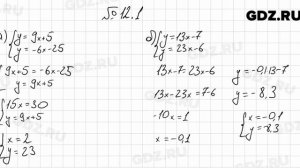 GDZ.RU
№ 12.1
а) { y = 9x+5
y = -6x-25
9x+5 = -6x-25
y = 9x+5
15x = 30
y = 9x+5
x = 2
y = 23
б) { y = 13x-7
y = 23x-6
13x-7 = 23x-6
13x-23x = 7-6
-10x = 1
x = -0,1
y = -0,1·13-7
y = -8,3
{ x = -0,1
y = -8,3